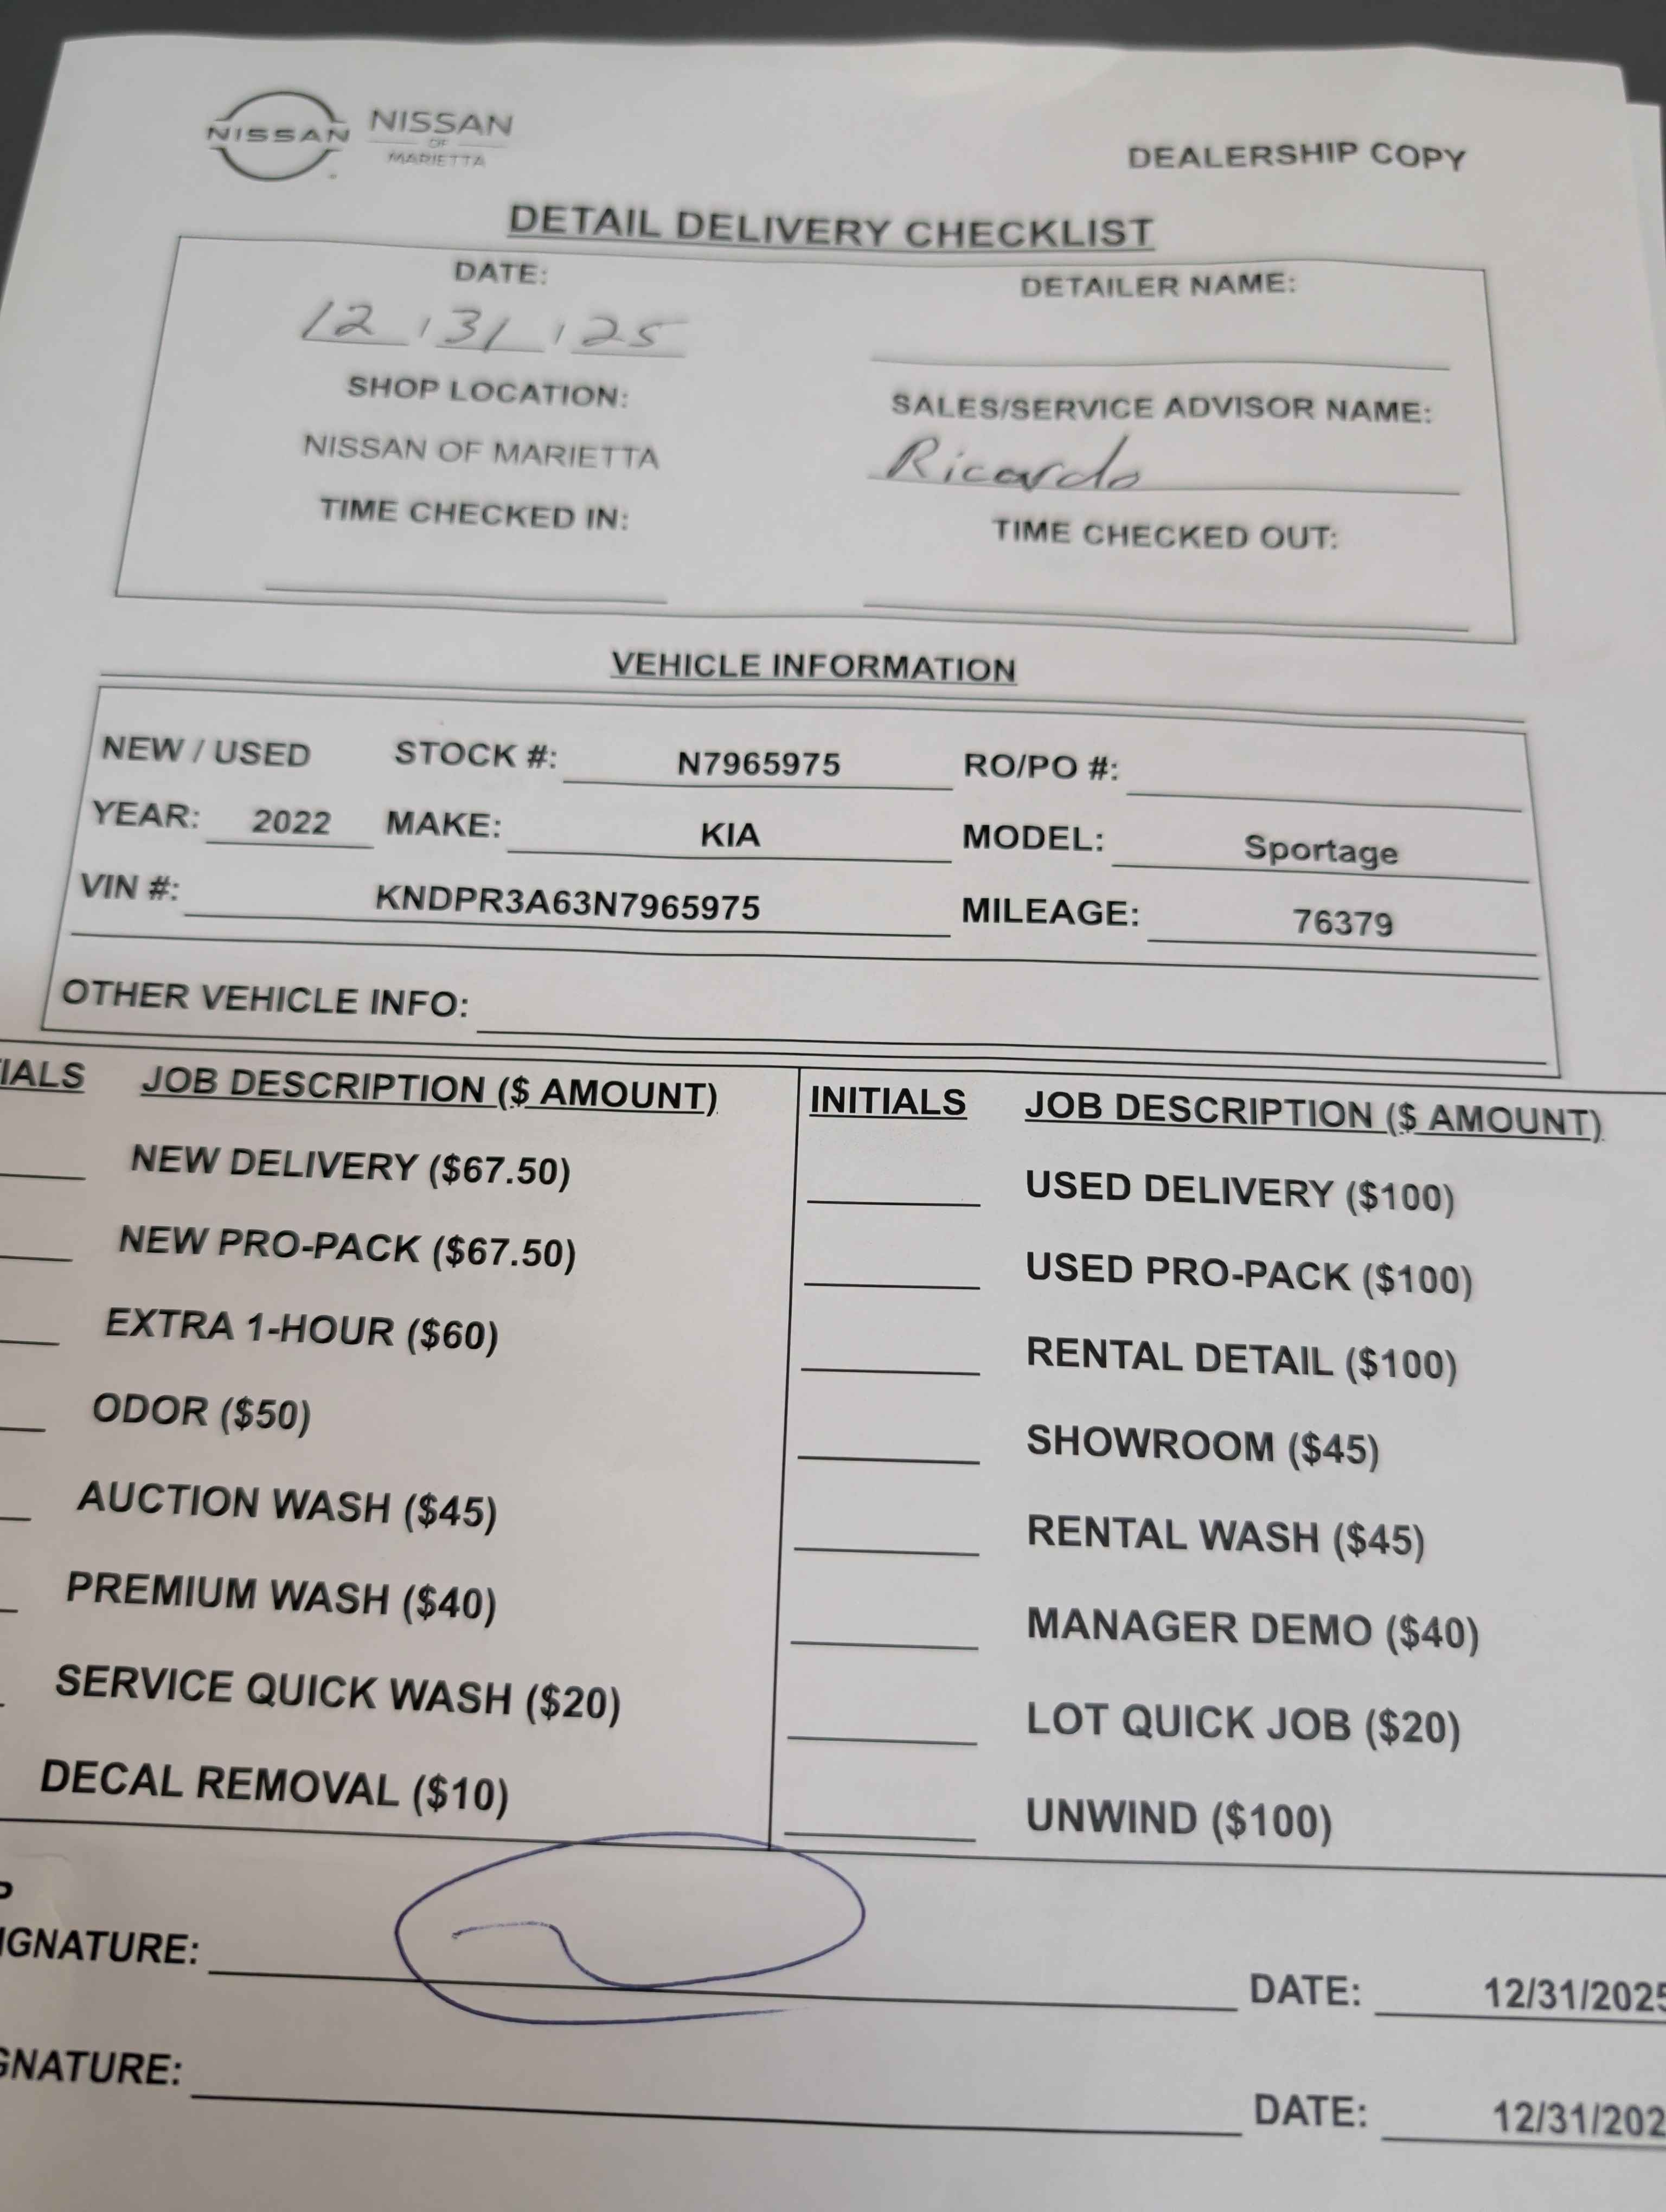 NISSAN NISSAN
OF
MARIETTA
DEALERSHIP COPY
DETAIL DELIVERY CHECKLIST
DATE: DETAILER NAME:
12 / 31 / 25
SHOP LOCATION: SALES/SERVICE ADVISOR NAME:
NISSAN OF MARIETTA Ricardo
TIME CHECKED IN: TIME CHECKED OUT:
VEHICLE INFORMATION
NEW / USED STOCK #: N7965975 RO/PO #:
YEAR: 2022 MAKE: KIA MODEL: Sportage
VIN #: KNDPR3A63N7965975 MILEAGE: 76379
OTHER VEHICLE INFO:
IALS JOB DESCRIPTION ($ AMOUNT) INITIALS JOB DESCRIPTION ($ AMOUNT)
NEW DELIVERY ($67.50) USED DELIVERY ($100)
NEW PRO-PACK ($67.50) USED PRO-PACK ($100)
EXTRA 1-HOUR ($60) RENTAL DETAIL ($100)
ODOR ($50) SHOWROOM ($45)
AUCTION WASH ($45) RENTAL WASH ($45)
PREMIUM WASH ($40) MANAGER DEMO ($40)
SERVICE QUICK WASH ($20) LOT QUICK JOB ($20)
DECAL REMOVAL ($10) UNWIND ($100)
P
IGNATURE: DATE: 12/31/2025
GNATURE: DATE: 12/31/202